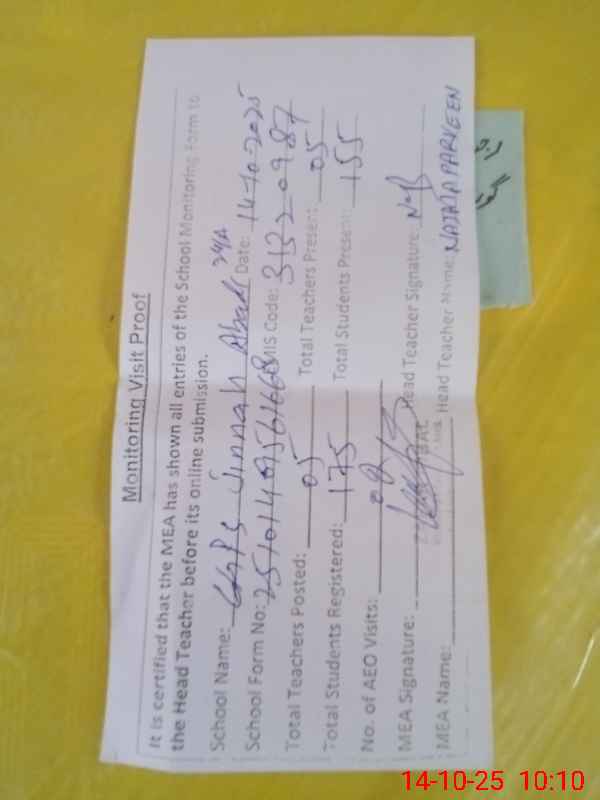 Monitoring Visit Proof
It is certified that the MEA has shown all entries of the School Monitoring Form to
the Head Teacher before its online submission.
School Name: GGPS Jinnah Abadi 24A Date: 14-10-2025
School Form No: EMIS Code: 31320987
Total Teachers Posted: 05 Total Teachers Present: 05
Total Students Registered: 175 Total Students Present: 155
No. of AEO Visits: 02
MEA Signature: Head Teacher Signature:
MEA Name: Head Teacher Name: NAJMA PARVEEN
14-10-25 10:10